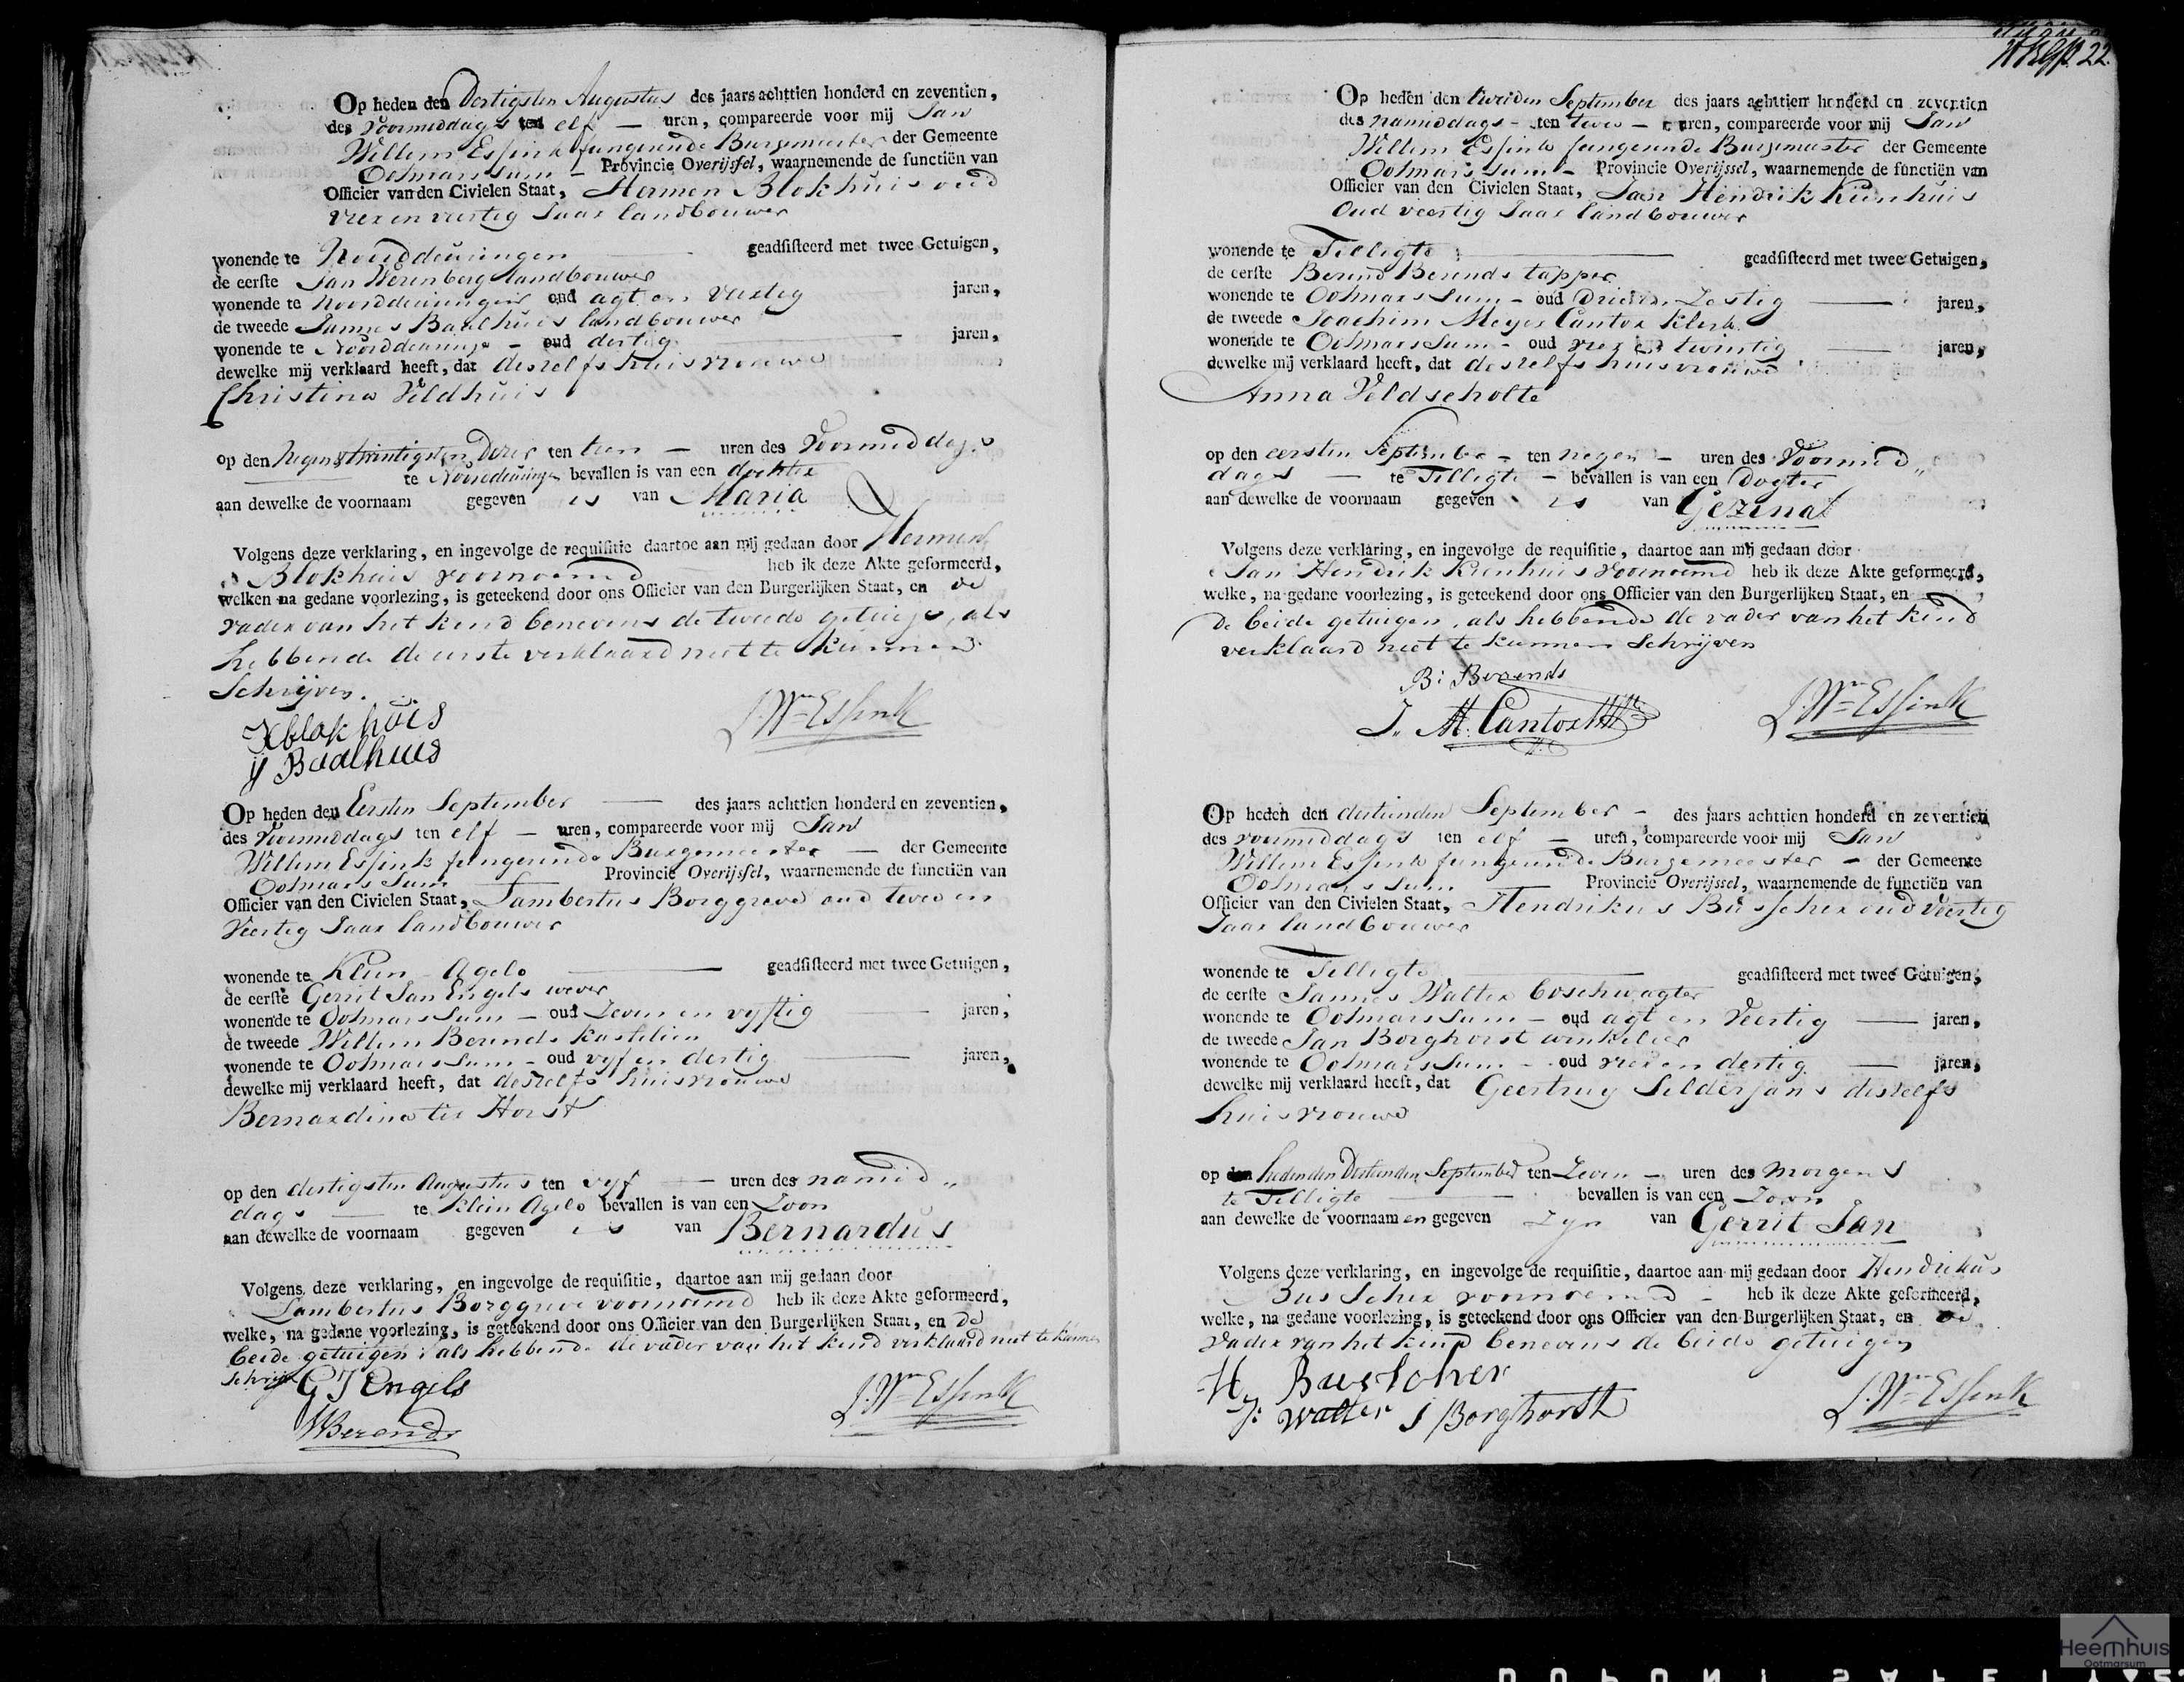 Op heden den Dertigsten Augustus des jaars achttien honderd en zeventien,
des voormiddags ten elf — uren, compareerde voor mij Jan
Willem Essink fungerende Burgemeester der Gemeente
Ootmarssum — Provincie Overijssel, waarnemende de functiën van
Officier van den Civielen Staat, Hermen Blokhuis oud
vier en veertig Jaar landbouwer
wonende te Noorddeuringen geadsisteerd met twee Getuigen,
de eerste Jan Werenberg landbouwer
wonende te Noorddeuringen oud agt en veertig jaren,
de tweede Jannes Baalhuis landbouwer
wonende te Noorddeuringe — oud dertig — jaren,
dewelke mij verklaard heeft, dat deszelfs huisvrouwe
Christina Veldhuis
op den Negen & twintigsten Dezer ten tien — uren des Voormiddags
te Noorddeuringen bevallen is van een dochter
aan dewelke de voornaam gegeven is van Maria
Volgens deze verklaring, en ingevolge de requisitie daartoe aan mij gedaan door Hermen
Blokhuis voornoemd heb ik deze Akte geformeerd,
welken na gedane voorlezing, is geteekend door ons Officier van den Burgerlijken Staat, en de
vader van het kind benevens de tweede getuige, als
hebbende de eerste verklaard niet te kunnen
Schrijven.
J. Wm Essink
H blokhuis
J Baalhuis
Op heden den Eersten September — des jaars achttien honderd en zeventien,
des Voormiddags ten elf — uren, compareerde voor mij Jan
Willem Essink fungerende Burgemeester — der Gemeente
Ootmarssum Provincie Overijssel, waarnemende de functiën van
Officier van den Civielen Staat, Lambertus Borggreve oud twee en
Veertig Jaar landbouwer
wonende te Klein Agelo — geadsisteerd met twee Getuigen,
de eerste Gerrit Jan Engels wever
wonende te Ootmarssum — oud Zeven en vyftig — jaren,
de tweede Willem Berends Kastelein
wonende te Ootmarssum — oud vyf en dertig — jaren,
dewelke mij verklaard heeft, dat deszelfs huisvrouwe
Bernardina ter Horst
op den dertigsten Augustus ten vyf — uren des namid„
dags — te Klein Agelo bevallen is van een Zoon
aan dewelke de voornaam gegeven is van Bernardus
Volgens deze verklaring, en ingevolge de requisitie, daartoe aan mij gedaan door
Lambertus Borggreve voornoemd heb ik deze Akte geformeerd,
welke, na gedane voorlezing, is geteekend door ons Officier van den Burgerlijken Staat, en de
beide getuigen, als hebbende de vader van het kind verklaard niet te kunnen
schrijven
G J Engels
J. Wm Essink
W Berends
22.
Op heden den tweeden September des jaars achttien honderd en zeventien
des namiddags — ten twee — uren, compareerde voor mij Jan
Willem Essink fungerende Burgemeester der Gemeente
Ootmarssum — Provincie Overijssel, waarnemende de functiën van
Officier van den Civielen Staat, Jan Hendrik Kienhuis
Oud veertig Jaar landbouwer
wonende te Tilligte — geadsisteerd met twee Getuigen,
de eerste Berend Berends tapper
wonende te Ootmarssum — oud Drie en Zestig — jaren,
de tweede Joachim Meyer Cantor Klerk
wonende te Ootmarssum — oud vier en twintig — jaren,
dewelke mij verklaard heeft, dat deszelfs huisvrouwe
Anna Veldscholte
op den eersten September — ten negen — uren des Voormid„
dags — te Tilligte — bevallen is van een Dogter
aan dewelke de voornaam gegeven is van Gezina
Volgens deze verklaring, en ingevolge de requisitie, daartoe aan mij gedaan door
Jan Hendrik Kienhuis voornoemd heb ik deze Akte geformeerd,
welke, na gedane voorlezing, is geteekend door ons Officier van den Burgerlijken Staat, en
De beide getuigen, als hebbende de vader van het kind
verklaard niet te kunnen Schrijven
B: Berends
J. M. Cantor
J. Wm Essink
Op heden den dertienden September — des jaars achttien honderd en zeventien
des voormiddags ten elf — uren, compareerde voor mij Jan
Willem Essink fungerende Burgemeester — der Gemeente
Ootmarssum Provincie Overijssel, waarnemende de functiën van
Officier van den Civielen Staat, Hendrikus Busscher oud Veertig
Jaar landbouwer
wonende te Tilligte — geadsisteerd met twee Getuigen,
de eerste Jannes Walter boschwagter
wonende te Ootmarssum — oud agt en Veertig — jaren,
de tweede Jan Borghorst winkelier
wonende te Ootmarssum — oud vier en dertig — jaren,
dewelke mij verklaard heeft, dat Geertruy Selderjans deszelfs
huisvrouwe
op den heden den Dertienden September ten Zeven — uren des morgens
te Tilligte — bevallen is van een Zoon
aan dewelke de voornaam en gegeven Zyn van Gerrit Jan
Volgens deze verklaring, en ingevolge de requisitie, daartoe aan mij gedaan door Hendrikus
Busscher voornoemd — heb ik deze Akte geformeerd,
welke, na gedane voorlezing, is geteekend door ons Officier van den Burgerlijken Staat, en de
Vader van het kind benevens de beide getuigen
H Busscher
J: Walter J Borghorst
J. Wm Essink
Heemhuis
Ootmarsum